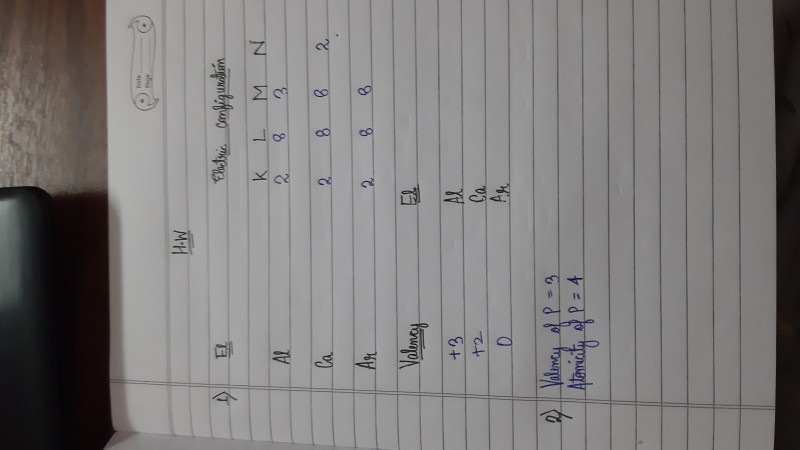 Date
Page
H.W
1) El Electric configuration
K L M N
Al 2 8 3
Ca 2 8 8 2.
Ar 2 8 8
Valency El
+3 Al
+2 Ca
0 Ar
2) Valency of P = 3
Atomicity of P = 4